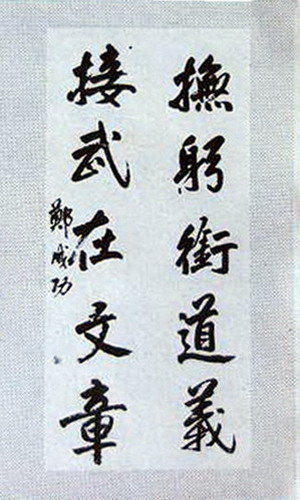 撫躬銜道義
接武在文章
鄭成功